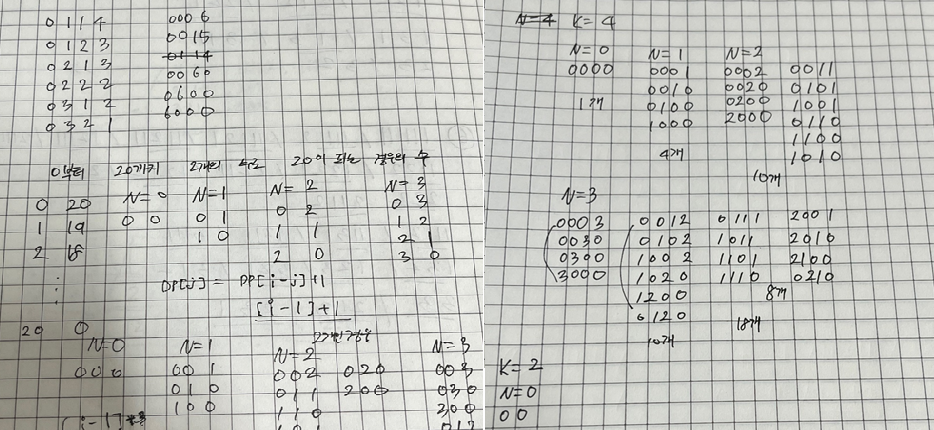 0 1 1 4
0 1 2 3
0 2 1 3
0 2 2 2
0 3 1 2
0 3 2 1
0 0 0 6
0 0 1 5
0 1 1 4
0 0 6 0
0 6 0 0
6 0 0 0
0부터 20까지 2개의 수로 20이 되는 경우의 수
0 20
1 19
2 18
⋮
20 0
N=0
0 0
N=1
0 1
1 0
N=2
0 2
1 1
2 0
N=3
0 3
1 2
2 1
3 0
DP[j] = DP[i-j]+1
[i-1]+1
N=0
0 0 0
N=1
0 0 1
0 1 0
1 0 0
N=2
0 0 2 0 2 0
0 1 1 2 0 0
1 1 0
1 0 1
N=3
0 0 3
0 3 0
3 0 0
0 1 2
N=4 K=4
N=0
0000
1개
N=1
0001
0010
0100
1000
4개
N=2
0002 0011
0020 0101
0200 1001
2000 0110
1100
1010
10개
N=3
0003 0012 0111 2001
0030 0102 1011 2010
0300 1002 1101 2100
3000 1020 1110 0210
1200 8개
0120 18개
10개
K=2
N=0
00